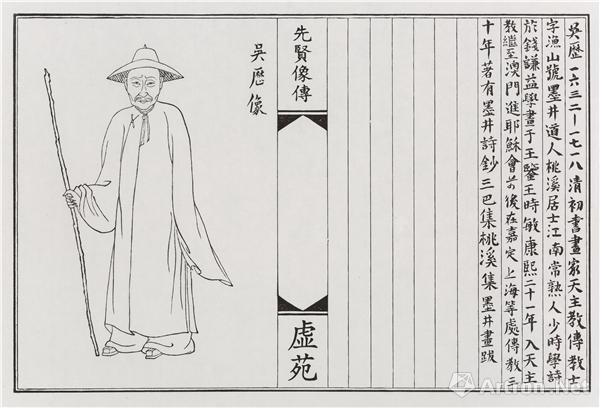 吳歷一六三二—一七一八清初書畫家天主教傳教士
字漁山號墨井道人桃溪居士江南常熟人少時學詩
於錢謙益學畫于王鑒王時敏康熙二十一年入天主
教繼至澳門進耶穌會前後在嘉定上海等處傳教三
十年著有墨井詩鈔三巴集桃溪集墨井畫跋
先賢像傳
虛苑
吳歷像
Artron.Net